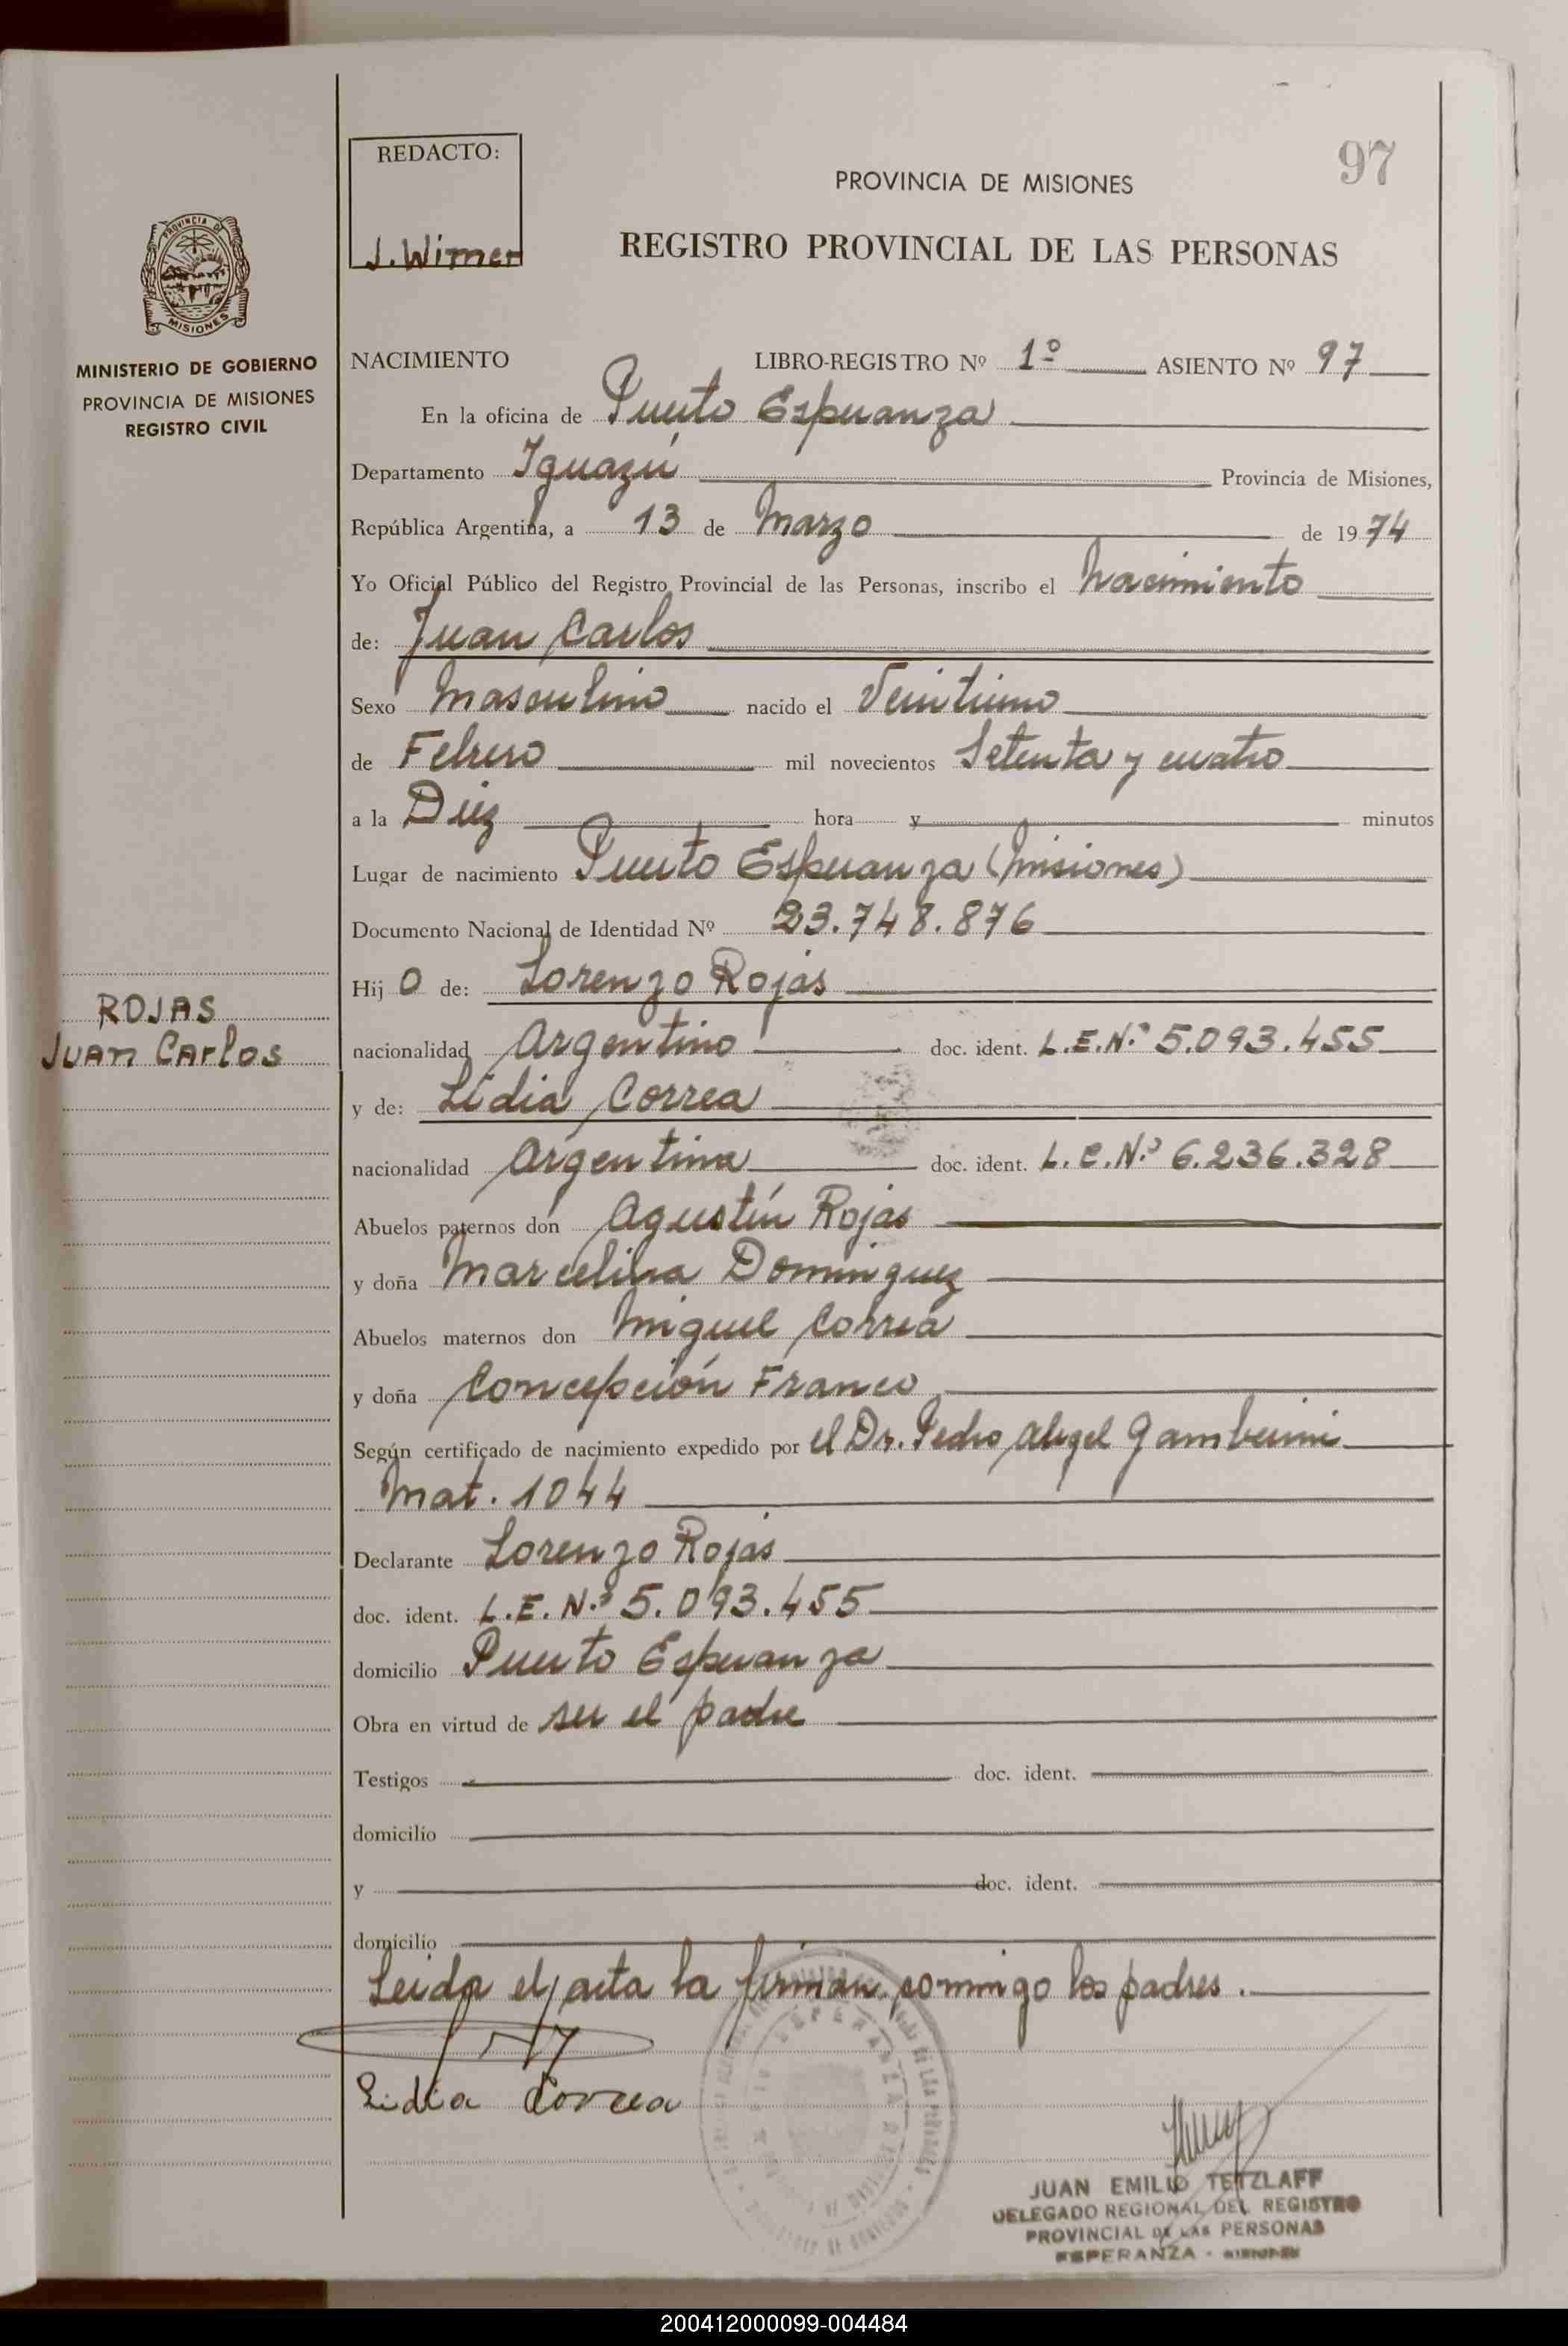 REDACTO:
J. Wimer
97
PROVINCIA DE MISIONES
REGISTRO PROVINCIAL DE LAS PERSONAS
PROVINCIA DE
MISIONES
MINISTERIO DE GOBIERNO
PROVINCIA DE MISIONES
REGISTRO CIVIL
NACIMIENTO LIBRO-REGISTRO Nº 1º ASIENTO Nº 97
En la oficina de Puerto Esperanza
Departamento Iguazú Provincia de Misiones,
República Argentina, a 13 de Marzo de 1974
Yo Oficial Público del Registro Provincial de las Personas, inscribo el Nacimiento
de: Juan Carlos
Sexo Masculino nacido el Veintiuno
de Febrero mil novecientos Setenta y cuatro
a la Diez hora y minutos
Lugar de nacimiento Puerto Esperanza (Misiones)
Documento Nacional de Identidad Nº 23.748.876
Hij o de: Lorenzo Rojas
ROJAS
Juan Carlos
nacionalidad Argentino doc. ident. L.E.Nº 5.093.455
y de: Lidia Correa
nacionalidad Argentina doc. ident. L.C.Nº 6.236.328
Abuelos paternos don Agustín Rojas
y doña Marcelina Dominguez
Abuelos maternos don Miguel Correa
y doña Concepción Franco
Según certificado de nacimiento expedido por el Dr. Pedro Angel Gamberini
Mat. 1044
Declarante Lorenzo Rojas
doc. ident. L.E. Nº 5.093.455
domicilio Puerto Esperanza
Obra en virtud de ser el padre
Testigos doc. ident.
domicilio
y doc. ident.
domicilio
Leida el acta la firman conmigo los padres.
Lidia Correa
JUAN EMILIO TETZLAFF
DELEGADO REGIONAL DEL REGISTRO
PROVINCIAL DE LAS PERSONAS
ESPERANZA - MISIONES
200412000099-004484